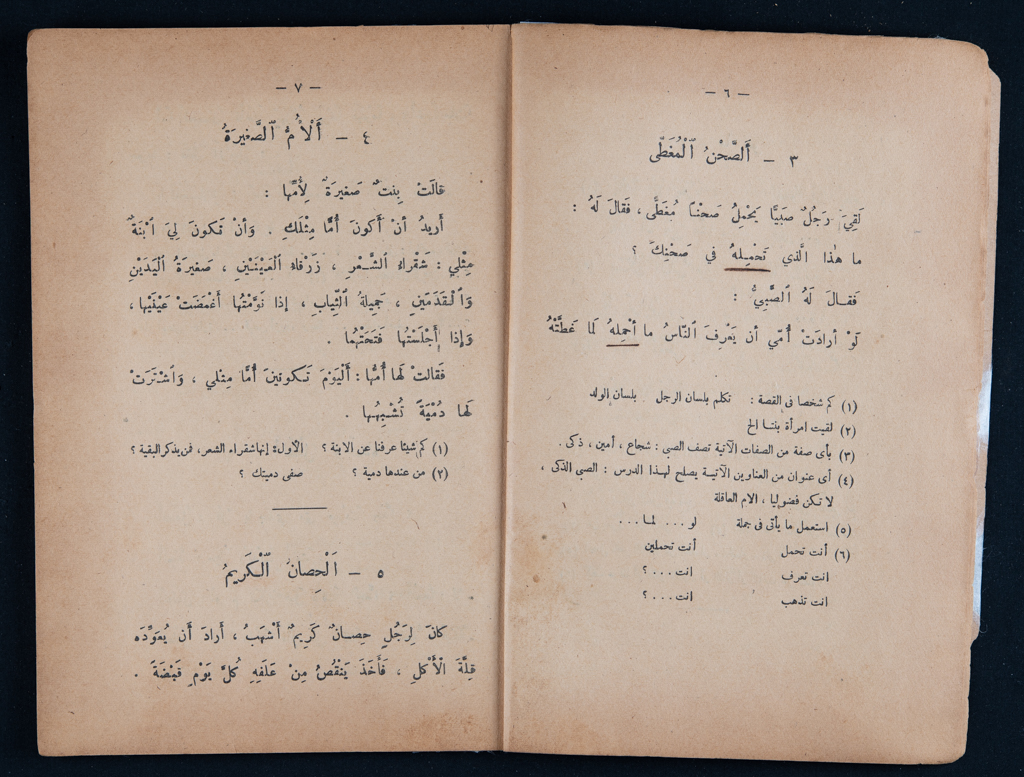 — ٦ —
٣ – أَلصَّحْنُ ٱلْمُغَطَّى
لَقِيَ رَجُلٌ صَبِيًّا يَحْمِلُ صَحْنًا مُغَطًّى ، فَقالَ لَهُ :
ما هٰذا الَّذي تَحْمِلُهُ في صَحْنِكَ ؟
فَقالَ لَهُ ٱلصَّبِيُّ :
لَوْ أرادَتْ أُمّي أن يَعْرِفَ ٱلنّاسُ ما أحْمِلُهُ لَما غَطَّتْهُ
(١) كم شخصا فى القصة : تكلم بلسان الرجل بلسان الولد
(٢) لقيت امرأة بنتا الخ
(٣) بأى صفة من الصفات الآتية تصف الصبى : شجاع ، أمين ، ذكى .
(٤) أى عنوان من العناوين الآتية يصلح لهذا الدرس : الصبى الذكى ،
لا تكن فضوليا ، الام العاقلة
(٥) استعمل ما يأتى فى جملة لو ... لما ...
(٦) أنت تحمل أنت تحملين
انت تعرف انت ... ؟
انت تذهب انت ... ؟
— ٧ —
٤ – أَلْأُمُّ ٱلصَّغيرَةُ
قالَتْ بِنتٌ صَغيرَةٌ لِأُمِّها :
أُريدُ أنْ أَكونَ أُمًّا مِثْلَكِ . وَأنْ تَكونَ لِيَ ٱبْنَةٌ
مِثْلي : شَقْراءُ ٱلشَّعْرِ ، زَرْقاءُ ٱلعَيْنَيْنِ ، صَغيرَةُ ٱليَدَيْنِ
وَٱلْقَدَمَيْنِ ، جَميلَةُ ٱلثِّيابِ ، إذا نَوَّمْتُها أَغْمَضَتْ عَيْنَيْها ،
وَإذا أَجْلَسْتُها فَتَحَتْهُما .
فَقالَتْ لَها أُمُّها : أَلْيَوْمَ تَكونينَ أُمًّا مِثْلي ، وَٱشْتَرَتْ
لَها دُمْيَةً تُشْبِهُها .
(١) كم شيئا عرفنا عن الابنة ؟ الأول: إنها شقراء الشعر، فمن يذكر البقية ؟
(٢) من عندها دمية ؟ صفى دميتك ؟
٥ – اَلْحِصانُ ٱلْكَريمُ
كانَ لِرَجُلٍ حِصانٌ كَريمٌ أَشْهَبُ ، أَرادَ أَن يُعَوِّدَه
قِلَّةَ الْأَكْلِ ، فَأَخَذَ يَنْقُصُ مِنْ عَلَفِهِ كُلَّ يَوْمٍ قَبْضَةً .